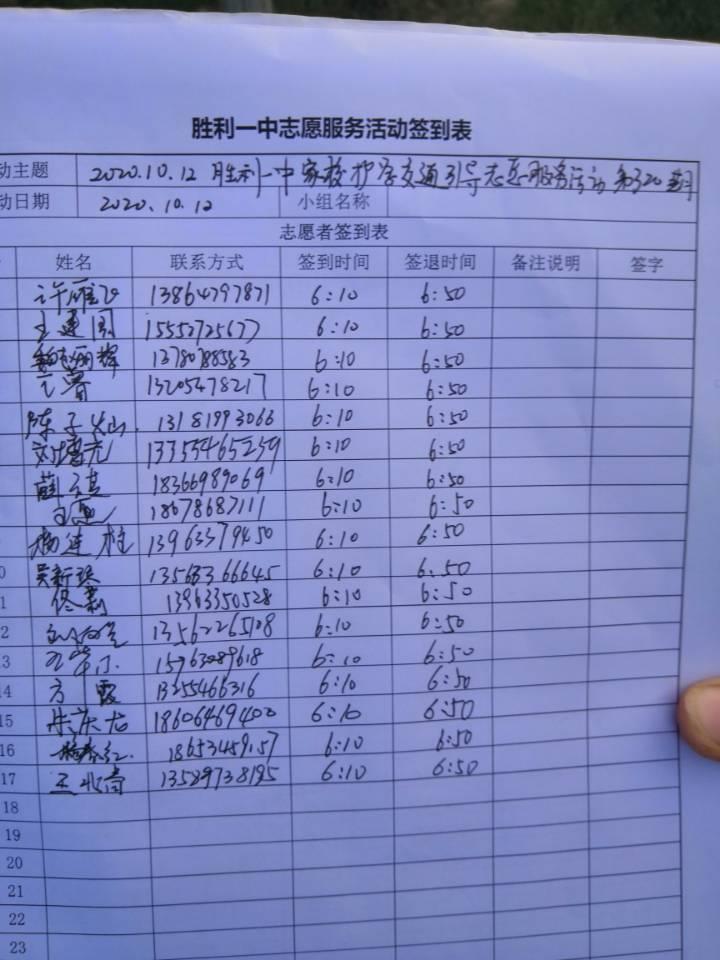 胜利一中志愿服务活动签到表
动主题 2020.10.12 胜利一中家校护学交通引导志愿服务活动 第320期
动日期 2020.10.12 小组名称
志愿者签到表
姓名 联系方式 签到时间 签退时间 备注说明 签字
许雁飞 13864797871 6:10 6:50
王建国 15552725677 6:10 6:50
辉 13780788583 6:10 6:50
13205478217 6:10 6:50
陈子火山 13181993066 6:10 6:50
刘增光 13355465259 6:10 6:50
薛 18366989069 6:10 6:50
王 18678687111 6:10 6:50
杨建柱 13963379450 6:10 6:50
0 吴新 13563366645 6:10 6:50
1 佟莉 13963350528 6:10 6:50
2 13562265108 6:10 6:50
3 15763089618 6:10 6:50
14 方霞 13255466316 6:10 6:50
15 庆龙 18606469402 6:10 6:50
16 杨春红 18653459157 6:10 6:50
17 王北斋 13589738195 6:10 6:50
18
19
20
21
22
23